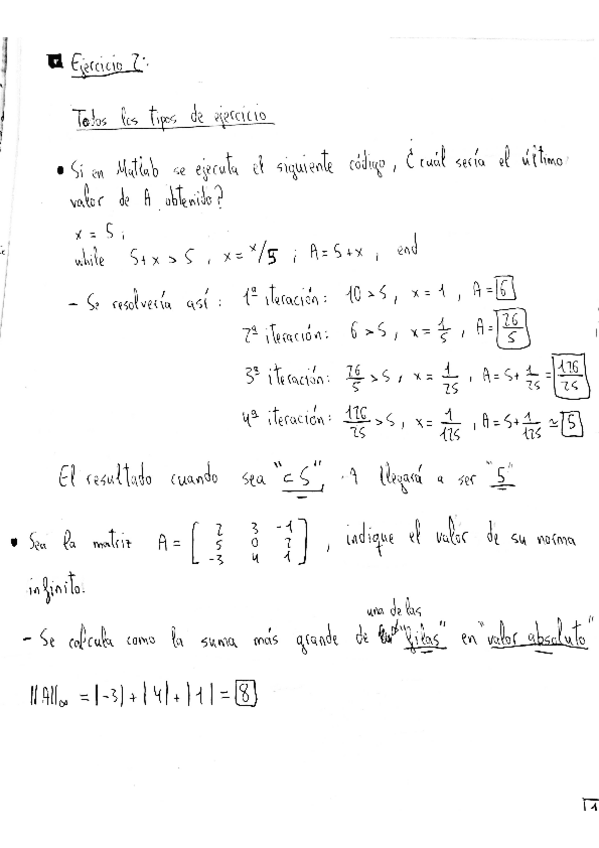 Ejercicio 2:
Todos los tipos de ejercicio
• Si en Matlab se ejecuta el siguiente código, ¿cuál sería el último
valor de A obtenido?
x = 5;
while 5+x > 5, x = x/5 ; A = 5+x, end
- Se resolvería así: 1ª iteración: 10 > 5, x = 1, A = 6
2ª iteración: 6 > 5, x = 1/5, A = 26/5
3ª iteración: 26/5 > 5, x = 1/25, A = 5 + 1/25 = 126/25
4ª iteración: 126/25 > 5, x = 1/125, A = 5 + 1/125 ≃ 5
El resultado cuando sea "≤ 5", A llegará a ser "5"
• Sea la matriz A = [2 3 -1; 5 0 2; -3 4 1], indique el valor de su norma
infinito.
- Se calcula como la suma más grande de una de las "filas" en "valor absoluto"
||A||∞ = |-3| + |4| + |1| = 8
1